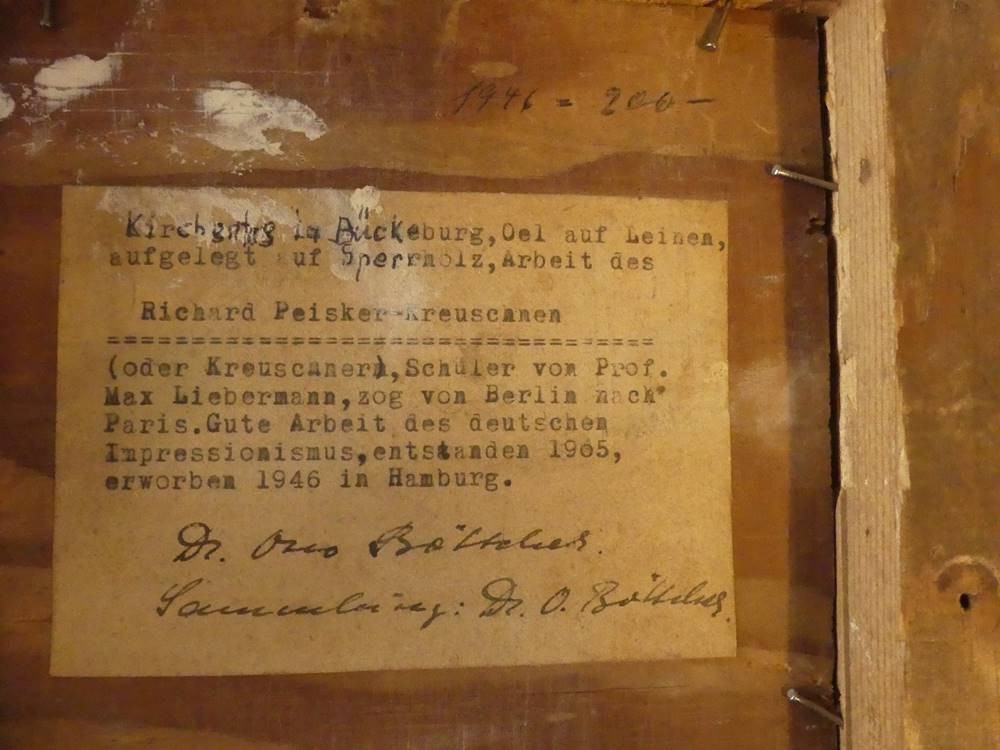 1946 = 200-
in Bückeburg, Oel auf Leinen,
aufgelegt auf Sperrholz, Arbeit des
Richard Peisker-Kreuschnen
================================
(oder Kreuschnern), Schüler von Prof.
Max Liebermann, zog von Berlin nach
Paris. Gute Arbeit des deutschen
Impressionismus, entstanden 1905,
erworben 1946 in Hamburg.
Dr. Otto Böttcher.
Sammlung: Dr. O. Böttcher.